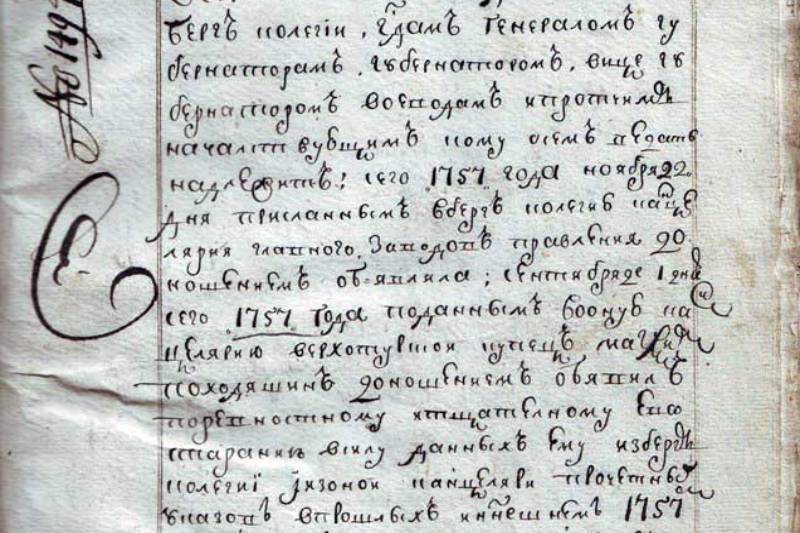 № 149
бергъ колегии, гдамъ генераломъ гу
бернаторамъ, губернаторомъ, вице гу
бернаторомъ воеводамъ и протчимъ
началствующимъ кому о семъ ведать
надлежитъ; сего 1757 года ноября 22
дня присланнымъ вбергъ колегию канце
лярия главного заводовъ правления до
ношениемъ объявила; сентября 1 дня
сего 1757 года поданнымъ воону ка
нцелярию верхотурской купецъ
походяшинъ доношениемъ объявилъ
поревностному итщателному ево
старанию всилу данныхъ ему избергъ
колегиі канцеляри
указовъ впрошлыхъ инынешнемъ 1757